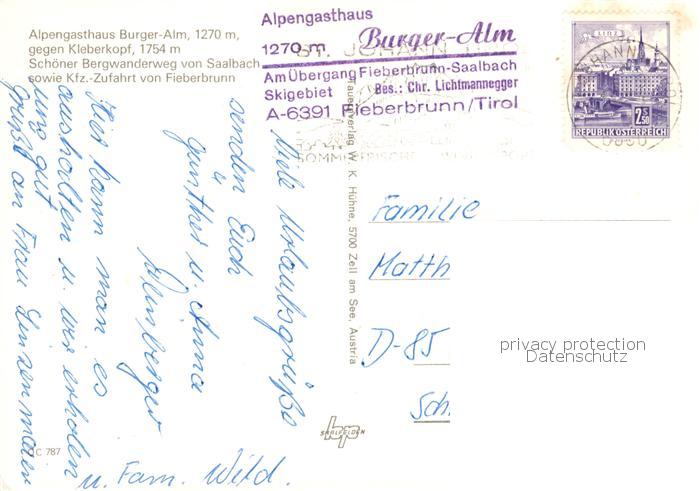 Alpengasthaus Burger-Alm, 1270 m,
gegen Kleberkopf, 1754 m
Schöner Bergwanderweg von Saalbach
sowie Kfz.-Zufahrt von Fieberbrunn
Alpengasthaus
1270 m Burger-Alm
Am Übergang Fieberbrunn-Saalbach
Skigebiet Bes.: Chr. Lichtmannegger
A-6391 Fieberbrunn/Tirol
ST. JOHANN
SOMMERFRISCHE
LINZ
2.50
REPUBLIK ÖSTERREICH
Viele Urlaubsgrüße
senden Euch
Günther u. Anna
Hier kann man es
aushalten u. wir erholen
uns gut
Gruß an Frau
u. Fam. Wild.
Familie
Matth
D-85
Sch
privacy protection
Datenschutz
Verlag W. K. Hühne, 5700 Zell am See, Austria
hp
SAALFELDEN
C 787